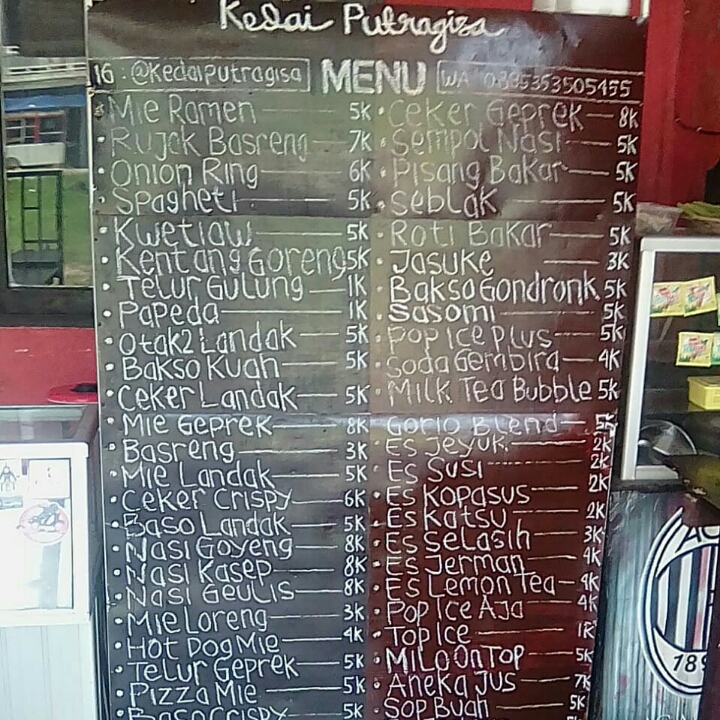 Kedai Putragisa
IG : @Kedaiputragisa MENU WA 0895353505455
Mie Ramen 5K
Rujak Basreng 7K
Onion Ring 6K
Spagheti 5K
Kwetiaw 5K
Kentang Goreng 5K
Telur Gulung 1K
Papeda 1K
Otak2 Landak 5K
Bakso Kuah 5K
Ceker Landak 5K
Mie Geprek 8K
Basreng 3K
Mie Landak 5K
Ceker Crispy 6K
Baso Landak 5K
Nasi Goyeng 8K
Nasi Kasep 8K
Nasi Geulis 8K
Mie Loreng 3K
Hot Dog Mie 4K
Telur Geprek 5K
Pizza Mie 5K
Baso Crispy 5K
Ceker Geprek 8K
Sempol Nasi 5K
Pisang Bakar 5K
Seblak 5K
Roti Bakar 5K
Jasuke 3K
Bakso Gondronk 5K
Sasomi 5K
Pop Ice Plus 5K
Soda Gembira 4K
Milk Tea Bubble 5K
Gorio Blend 5K
Es Jeyuk 2K
Es Susi 2K
Es Kopasus 2K
Es Katsu 2K
Es Selasih 3K
Es Jerman 4K
Es Lemon Tea 4K
Pop Ice Aja 4K
Top Ice 1K
Milo On Top 5K
Aneka Jus 7K
Sop Buah 5K
AC
189